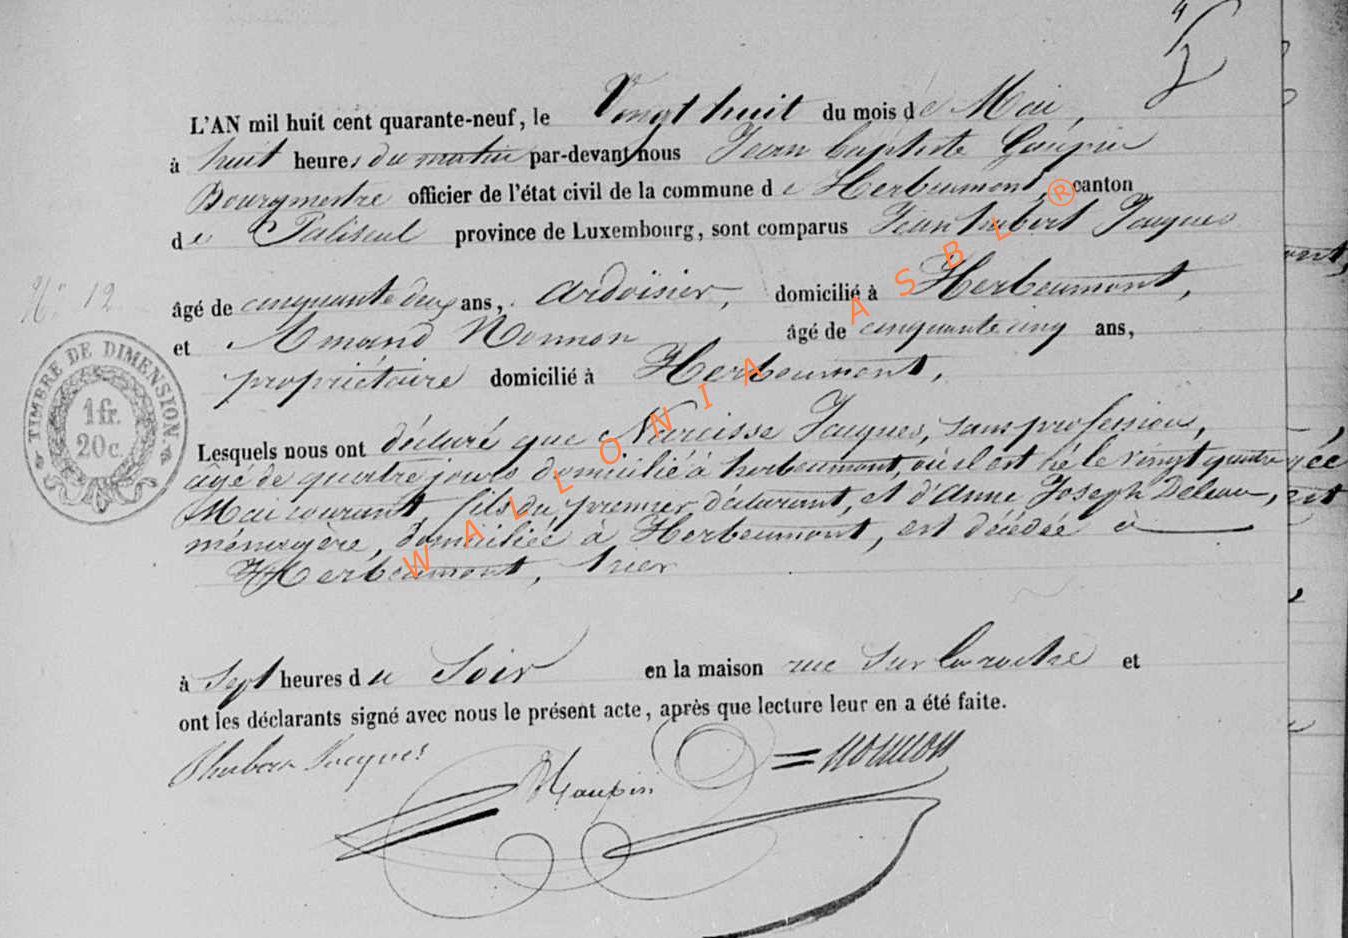 L'AN mil huit cent quarante-neuf, le Vingt huit du mois de Mai,
à huit heures du matin par-devant nous Jean baptiste Gaupin
Bourgmestre officier de l'état civil de la commune de Herbeumont, canton
de Paliseul province de Luxembourg, sont comparus Jean hubert Jacques
N.° 12
âgé de cinquante deux ans, ardoisier, domicilié à Herbeumont,
et Amand Nonnon âgé de cinquante cinq ans,
propriétaire domicilié à Herbeumont,
TIMBRE DE DIMENSION.
1 fr.
20 c.
Lesquels nous ont déclaré que Narcisse Jacques, sans profession,
âgé de quatre jours domicilié à herbeumont, où il est né le vingt quatre
Mai courant fils du premier déclarant, et d'Anne Joseph
ménagère, domiciliée à Herbeumont, est décédée à
Herbeumont, hier
à Sept heures du Soir en la maison rue Sur la roche et
ont les déclarants signé avec nous le présent acte, après que lecture leur en a été faite.
Jhubert Jacques
nonnon
WALLONIA ASBL ®